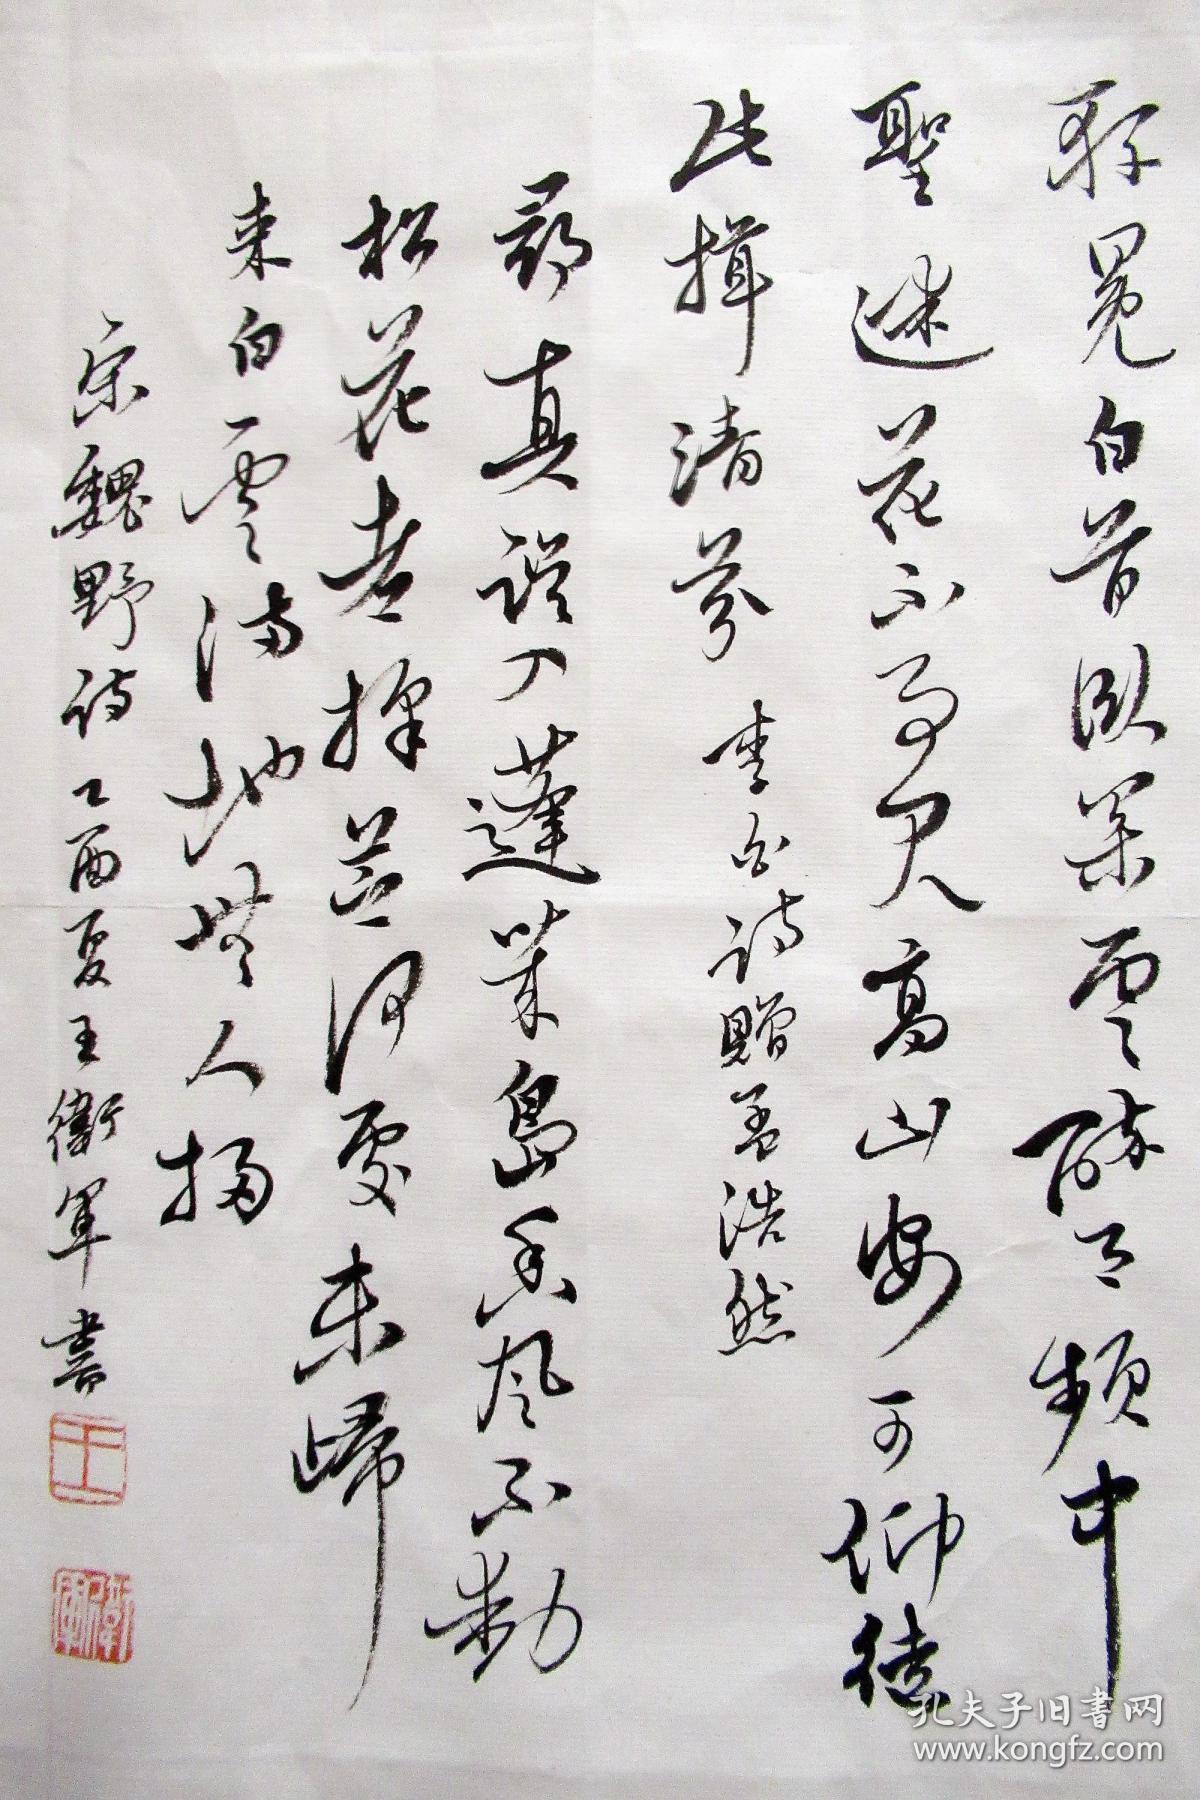 軒冕白首臥枩雲醉月頻中
聖迷花不事君高山安可仰徒
此揖清芬 李白詩贈孟浩然
尋真誤入蓬萊島香風不動
松花老採芝何處未歸
来白雲滿地無人掃
宋魏野詩乙酉夏王衛軍書
王
衛軍
孔夫子旧書网
www.kongfz.com